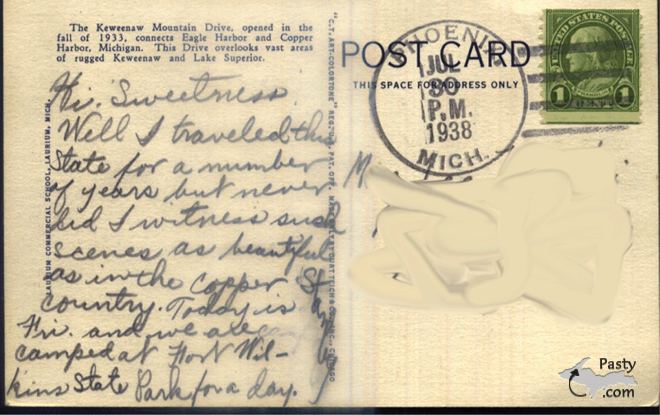 The Keweenaw Mountain Drive, opened in the
fall of 1933, connects Eagle Harbor and Copper
Harbor, Michigan. This Drive overlooks vast areas
of rugged Keweenaw and Lake Superior.
Hi. Sweetness
Well I traveled this
State for a number
of years but never
did I witness such
scenes as beautiful
as in the Copper
country. Today is
Fri. and we are
camped at Fort Wil-
kins State Park for a day.
LAURIUM COMMERCIAL SCHOOL, LAURIUM, MICH.
"C.T. ART-COLORTONE" REG. U.S. PAT. OFF.
POST CARD
THIS SPACE FOR ADDRESS ONLY
PHOENIX
JUL
30
P.M.
1938
MICH.
UNITED STATES POSTAGE
1 CENT 1
M
Pasty
.com